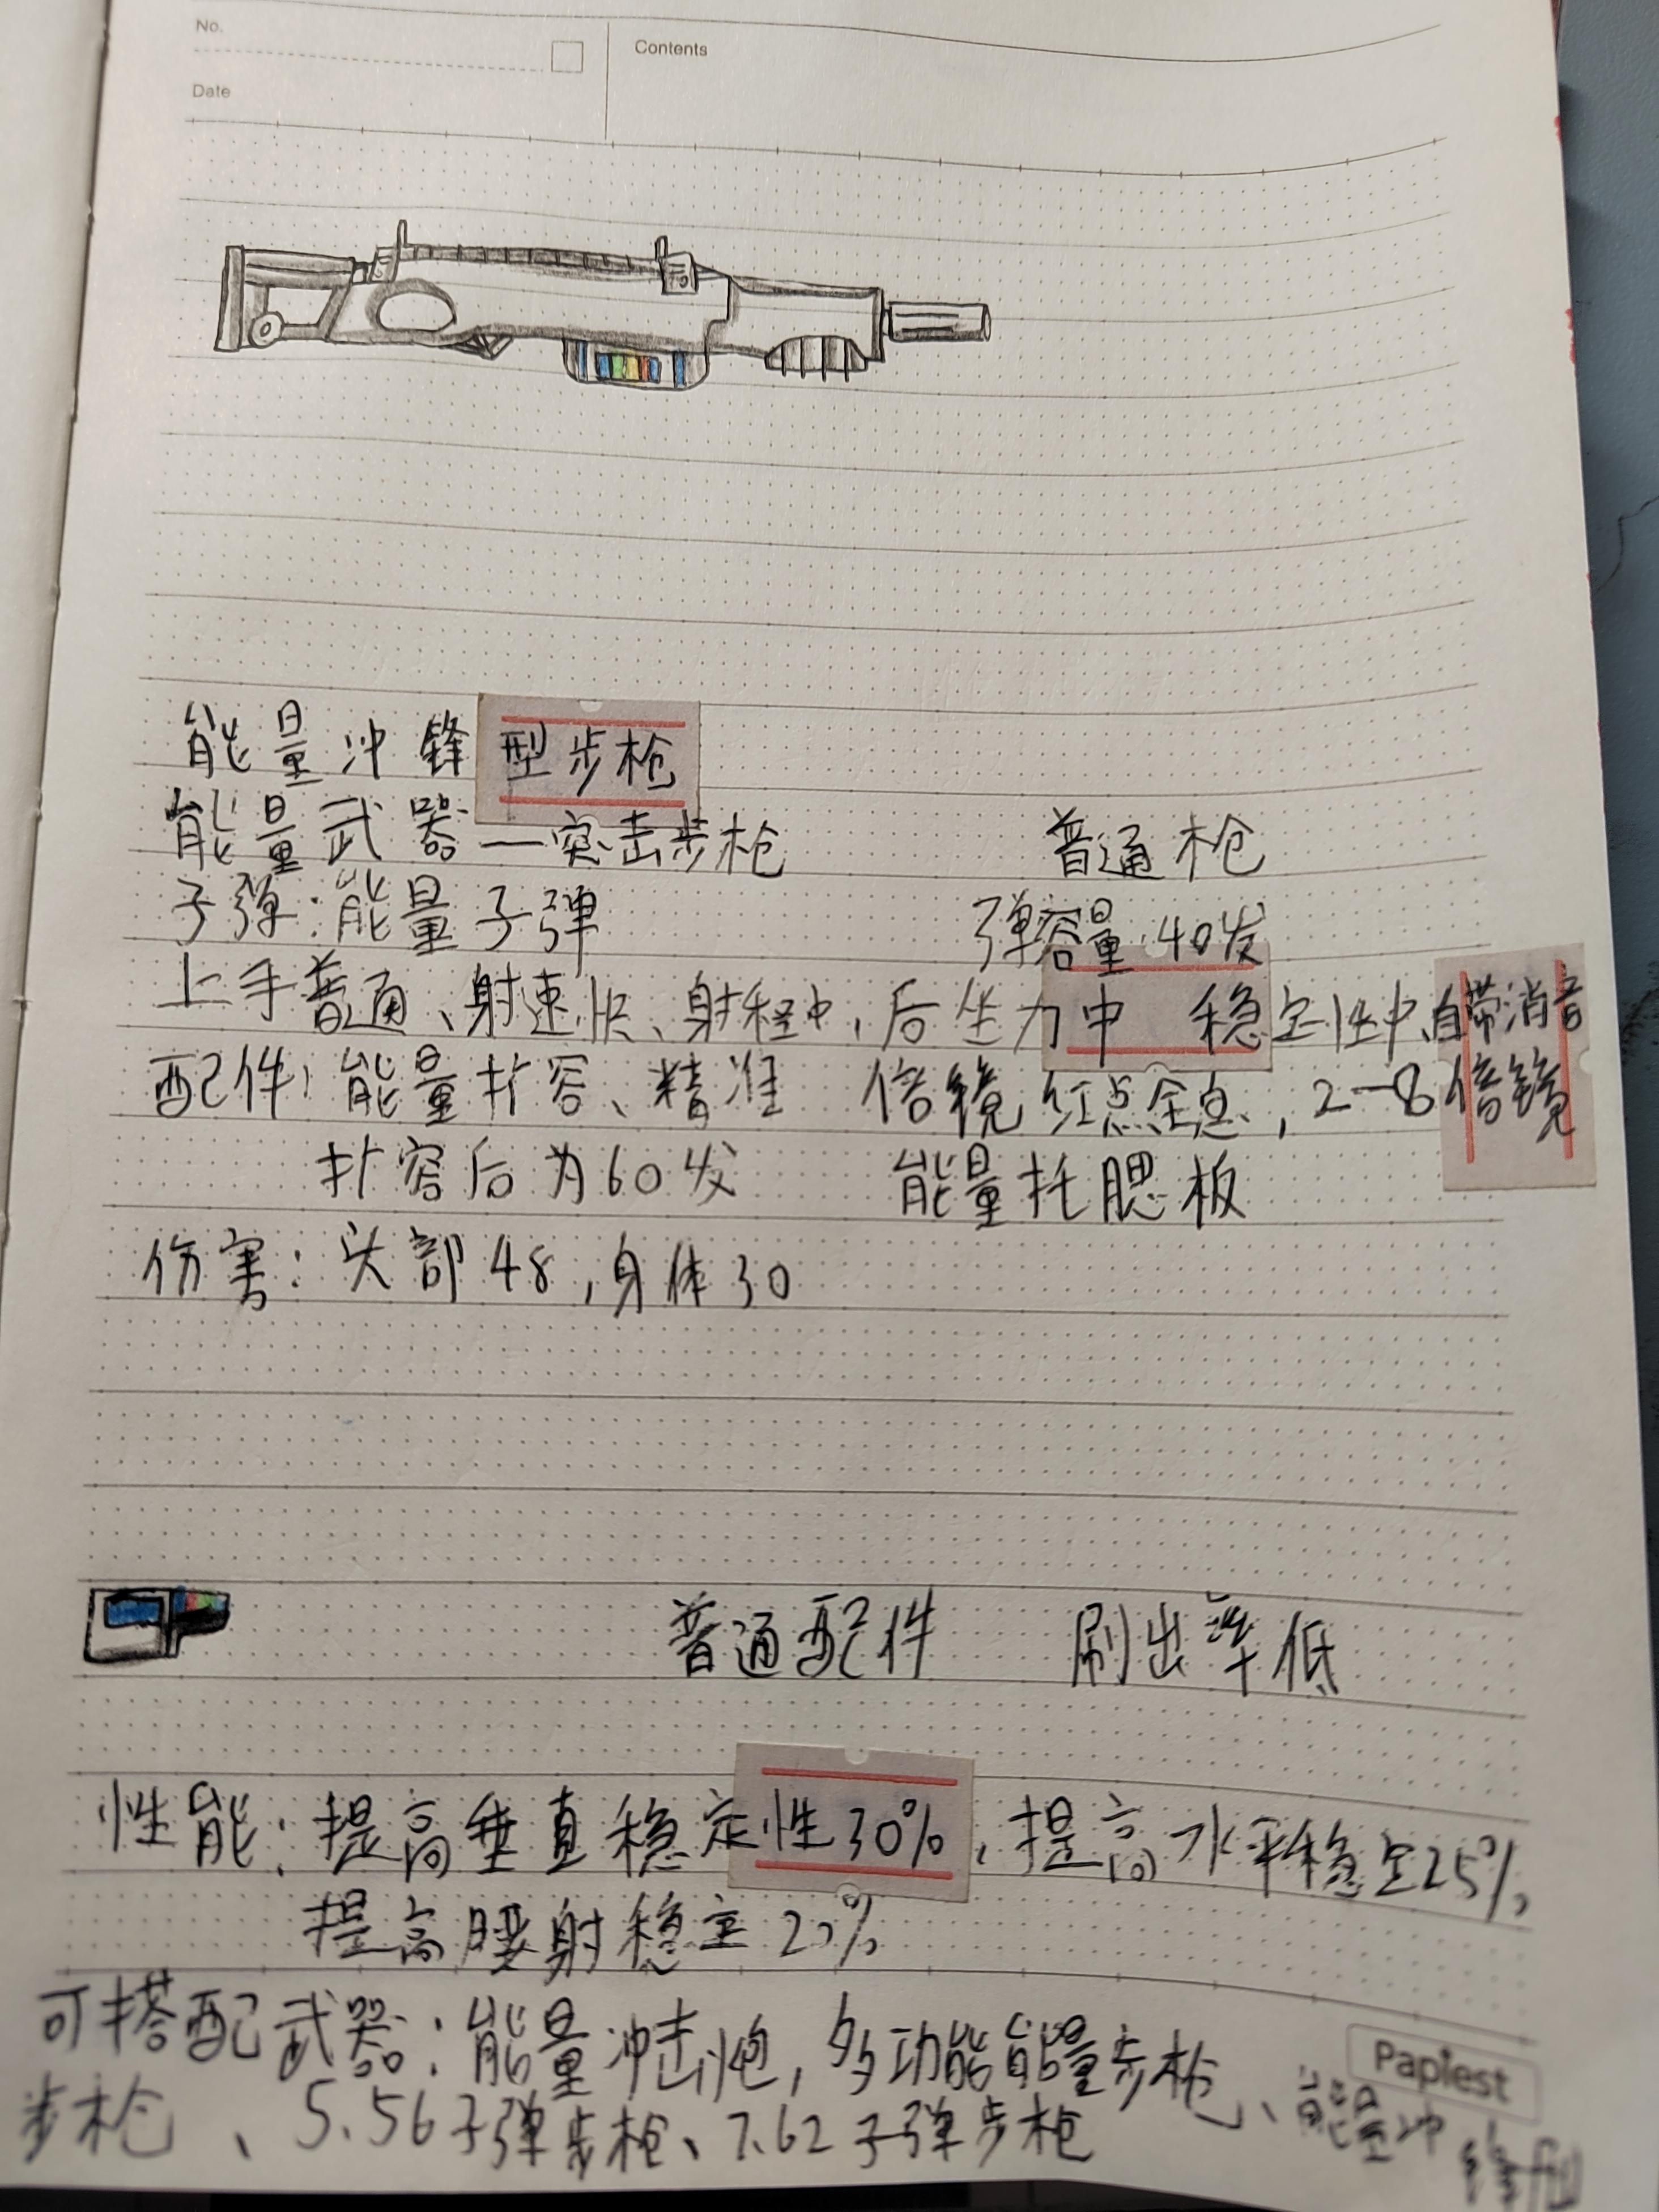 No.
Contents
Date
能量冲锋型步枪
能量武器—突击步枪 普通枪
子弹:能量子弹 弹容量:40发
上手普通、射速快、射程中,后坐力中 稳定性中、自带消音
配件:能量扩容、精准 倍镜 红点全息,2-8倍镜
扩容后为60发 能量托腮板
伤害:头部48,身体30
普通配件 刷出率低
性能:提高垂直稳定性30%,提高水平稳定25%,
提高腰射稳定20%
可搭配武器:能量冲击炮,多功能能量步枪、能量冲锋型
步枪、5.56子弹步枪、7.62子弹步枪
Papiest